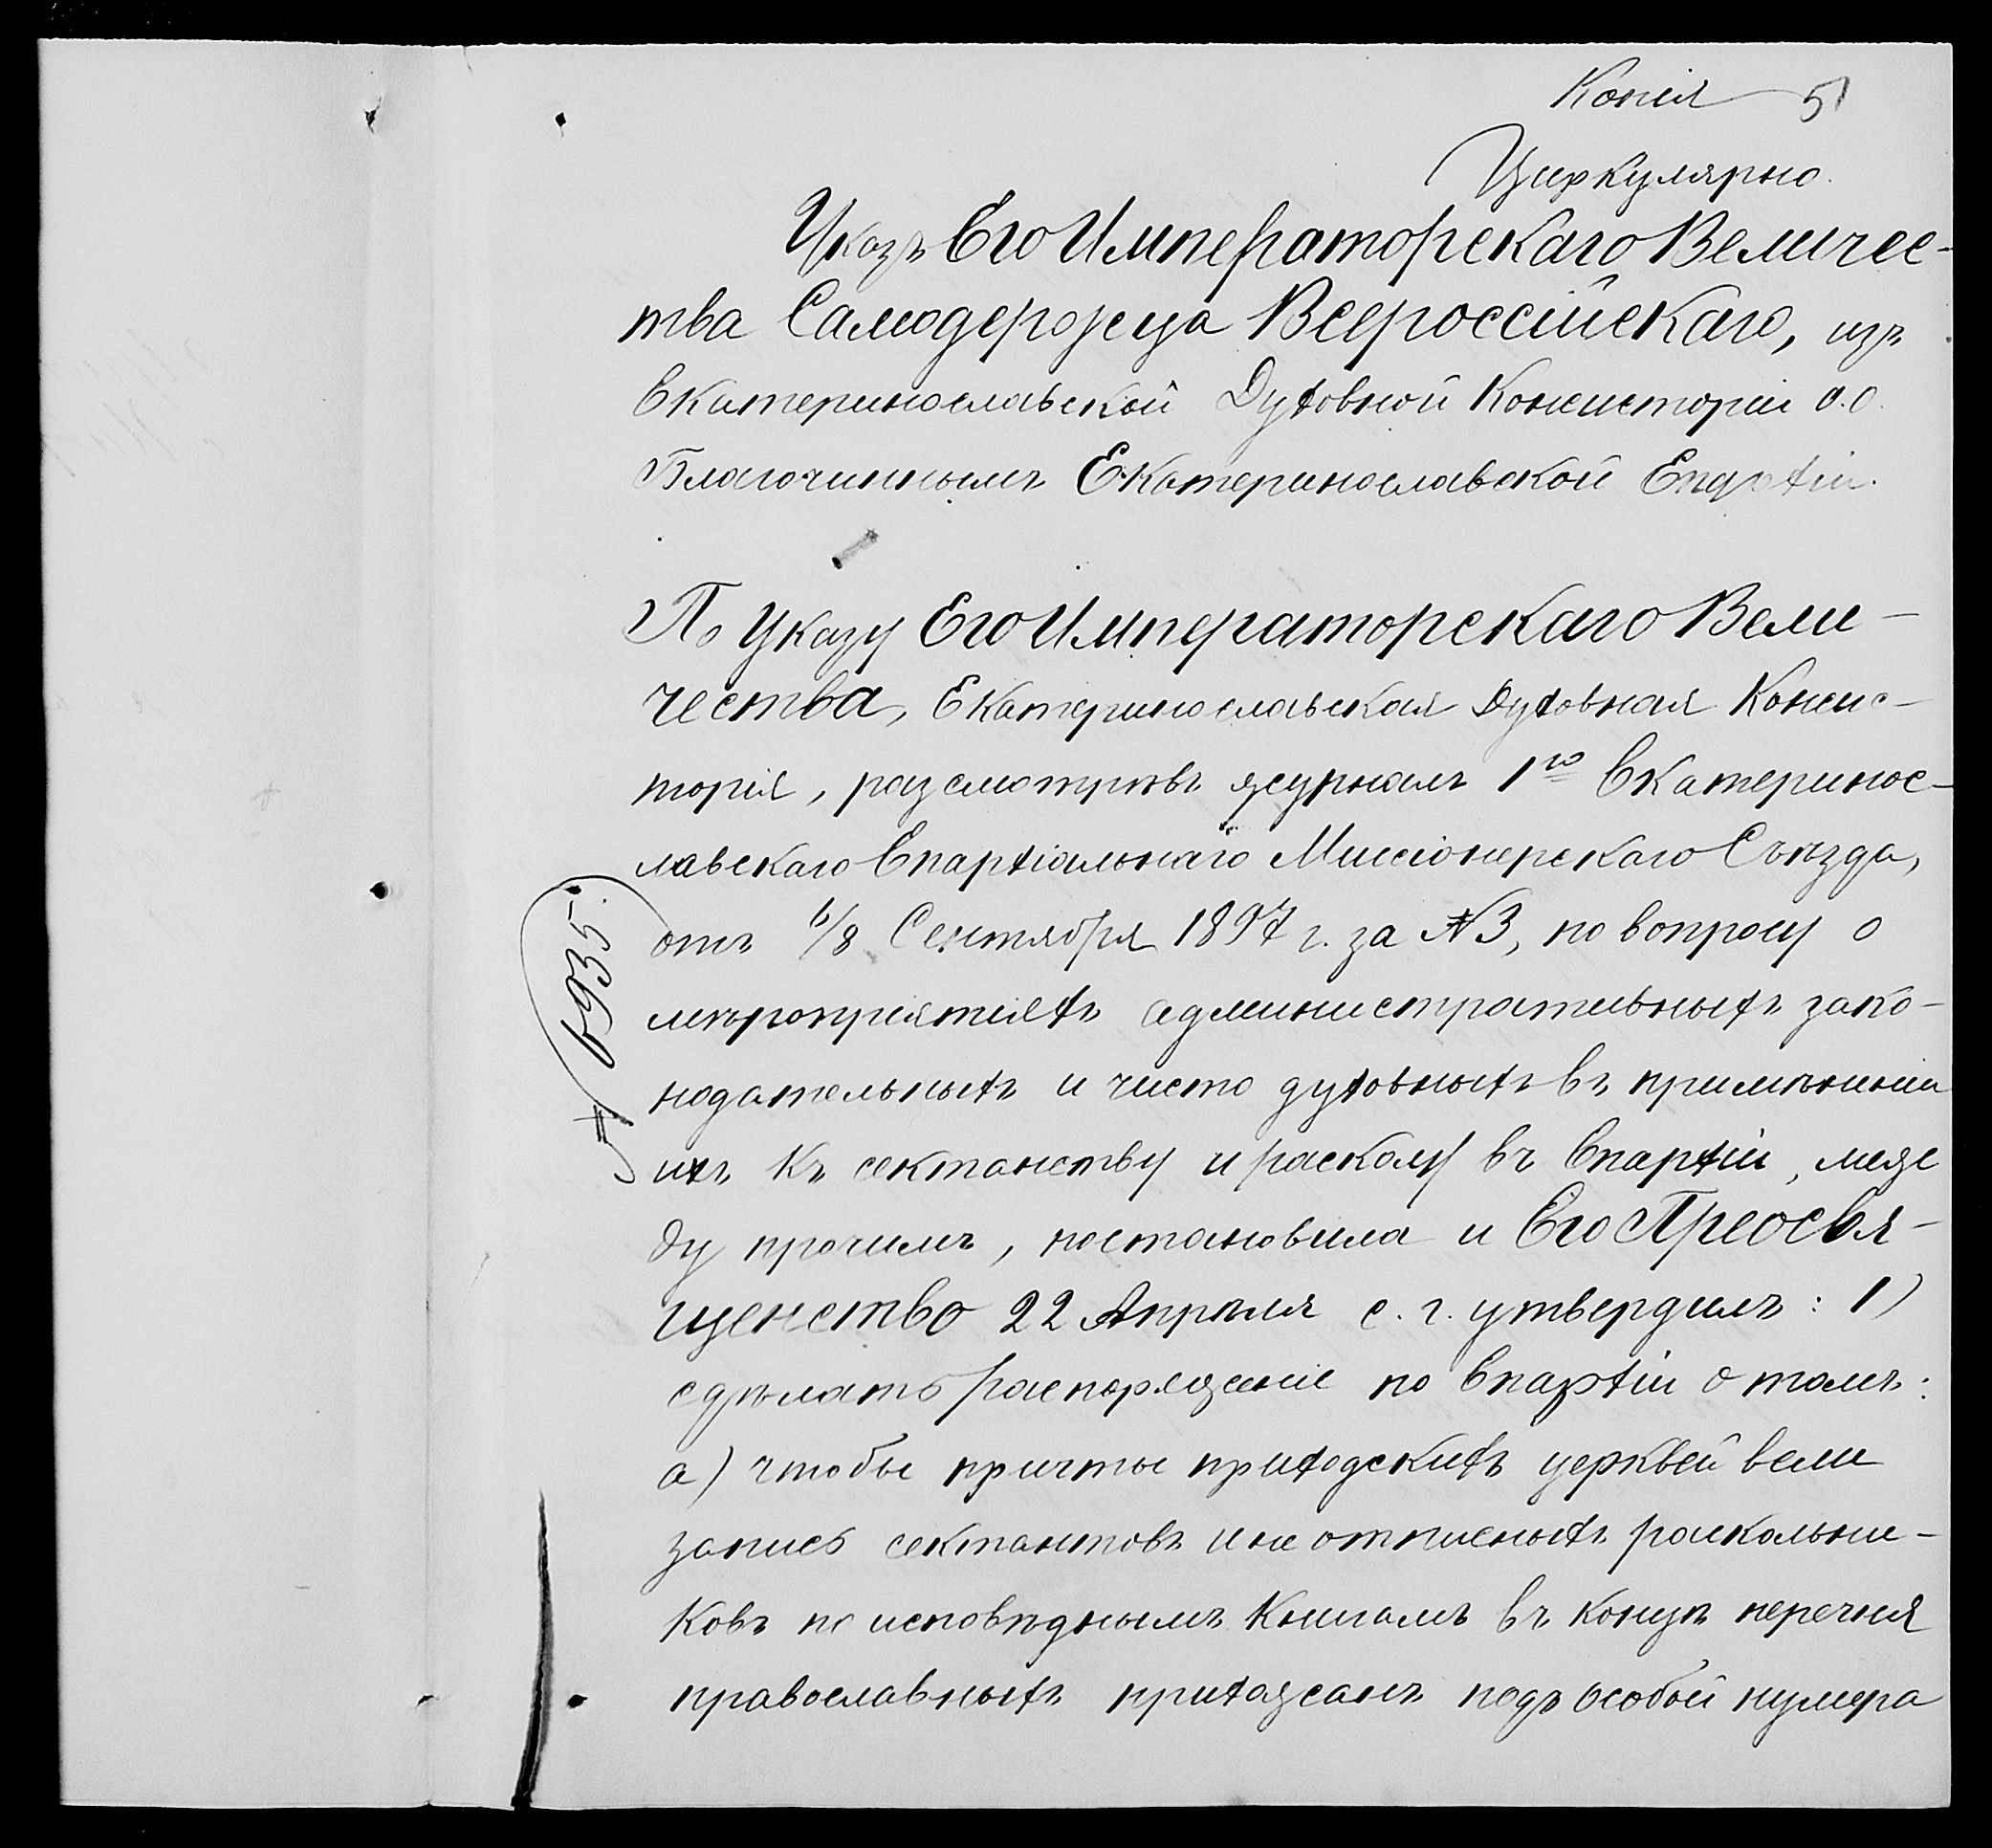 Копія 5
Циркулярно.
Указъ Его Императорскаго Величес-
тва Самодержца Всероссійскаго, изъ
Екатеринославской Духовной Консисторіи о.о.
Благочиннымъ Екатеринославской Епархіи.
По указу Его Императорскаго Вели-
чества, Екатеринославская Духовная Консис-
торія, разсмотрѣвъ журналъ 1го Екатеринос-
лавскаго Епархіальнаго Миссіонерскаго Съѣзда,
отъ 6/8 Сентября 1897 г. за №3, по вопросу о
мѣропріятіяхъ административныхъ зако-
нодательныхъ и чисто духовныхъ въ примѣненіи
ихъ къ сектанству и расколу въ Епархіи, меж
ду прочимъ, постановила и Его Преосвя-
щенство 22 Апрѣля с. г. утвердилъ: 1)
сдѣлать распоряженіе по Епархіи о томъ:
а) чтобы причты приходскихъ церквей вели
запись сектантовъ и не отписныхъ раскольни-
ковъ по исповѣднымъ книгамъ въ концѣ перечня
православныхъ прихожанъ подъ особой нумера
6935.